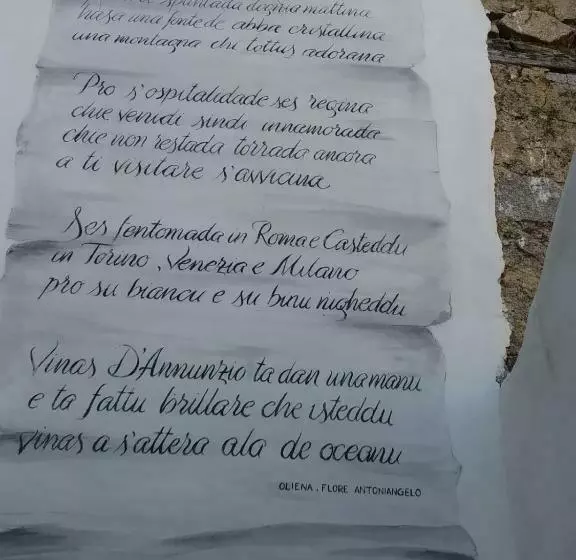 spuntada dogna mattina
hasa una fonte de abba cristallina
una montagna chi tottus adorana
Pro s'ospitalidade ses regina
chie venidi sindi innamorada
chie non restada torrada ancora
a ti visitare s'avvicina
Ses fentomada in Roma e Casteddu
in Torino, Venezia e Milano
pro su biancu e su binu nigheddu
Vinas D'Annunzio ta dan una manu
e ta fattu brillare che isteddu
vinas a s'attera ala de oceanu
OLIENA. FLORE ANTONIANGELO